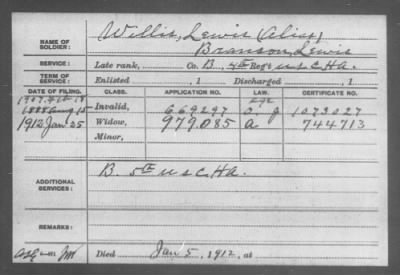 NAME OF SOLDIER: Willis, Lewis (Alias)
Branson, Lewis
SERVICE: Late rank, Co. B, 4th Reg't U S C H A.
TERM OF SERVICE: Enlisted , 1 Discharged , 1
DATE OF FILING. CLASS. APPLICATION NO. LAW. CERTIFICATE NO.
1888 Aug 15 Invalid, 669297 1073027
1912 Jan 25 Widow, 979.085 a 744713
Minor,
ADDITIONAL SERVICES: B. 5th U S C H A.
REMARKS:
Died Jan 5, 1912, at